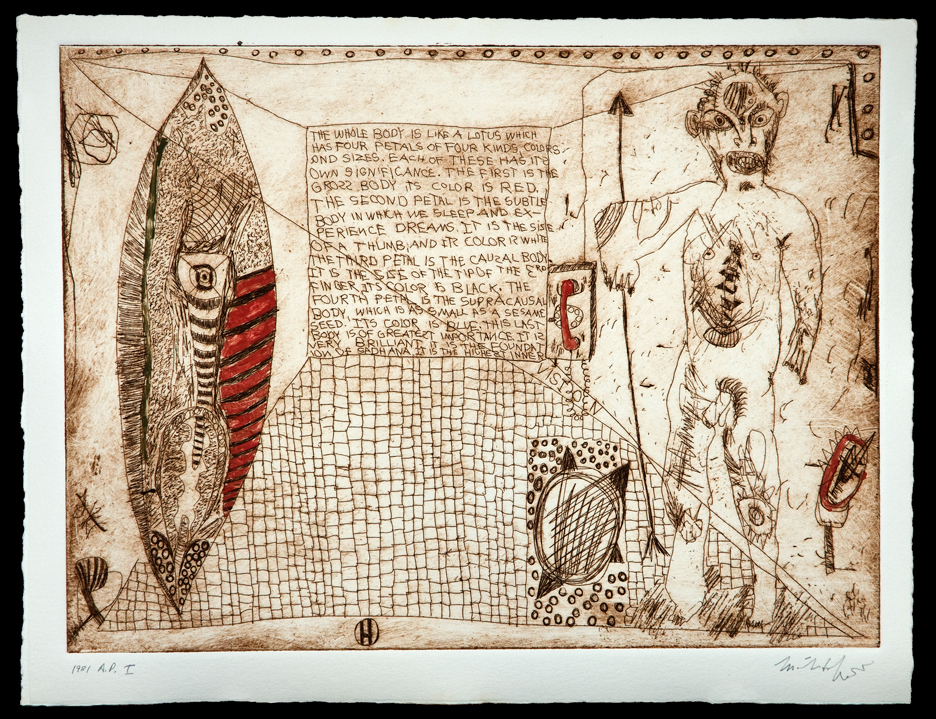 THE WHOLE BODY IS LIKE A LOTUS WHICH
HAS FOUR PETALS OF FOUR KINDS, COLORS
AND SIZES. EACH OF THESE HAS ITS
OWN SIGNIFICANCE. THE FIRST IS THE
GROSS BODY, ITS COLOR IS RED.
THE SECOND PETAL IS THE SUBTLE
BODY IN WHICH WE SLEEP AND EX-
PERIENCE DREAMS. IT IS THE SISE
OF A THUMB, AND ITS COLOR IS WHITE
THE THIRD PETAL IS THE CAUZAL BODY
IT IS THE SISE OF THE TIP OF THE 3RD
FINGER, ITS COLOR IS BLACK. THE
FOURTH PETAL IS THE SUPRACAUSAL
BODY, WHICH IS AS SMALL AS A SESAME
SEED. ITS COLOR IS BLUE. THIS LAST
BODY IS OF GREATEST IMPORTANCE. IT IS
VERY BRILLIANT. IT IS THE FOUNDAT
ION OF SADHANA. IT IS THE HIGHEST INNER
VISION
H
1981 A.P. I